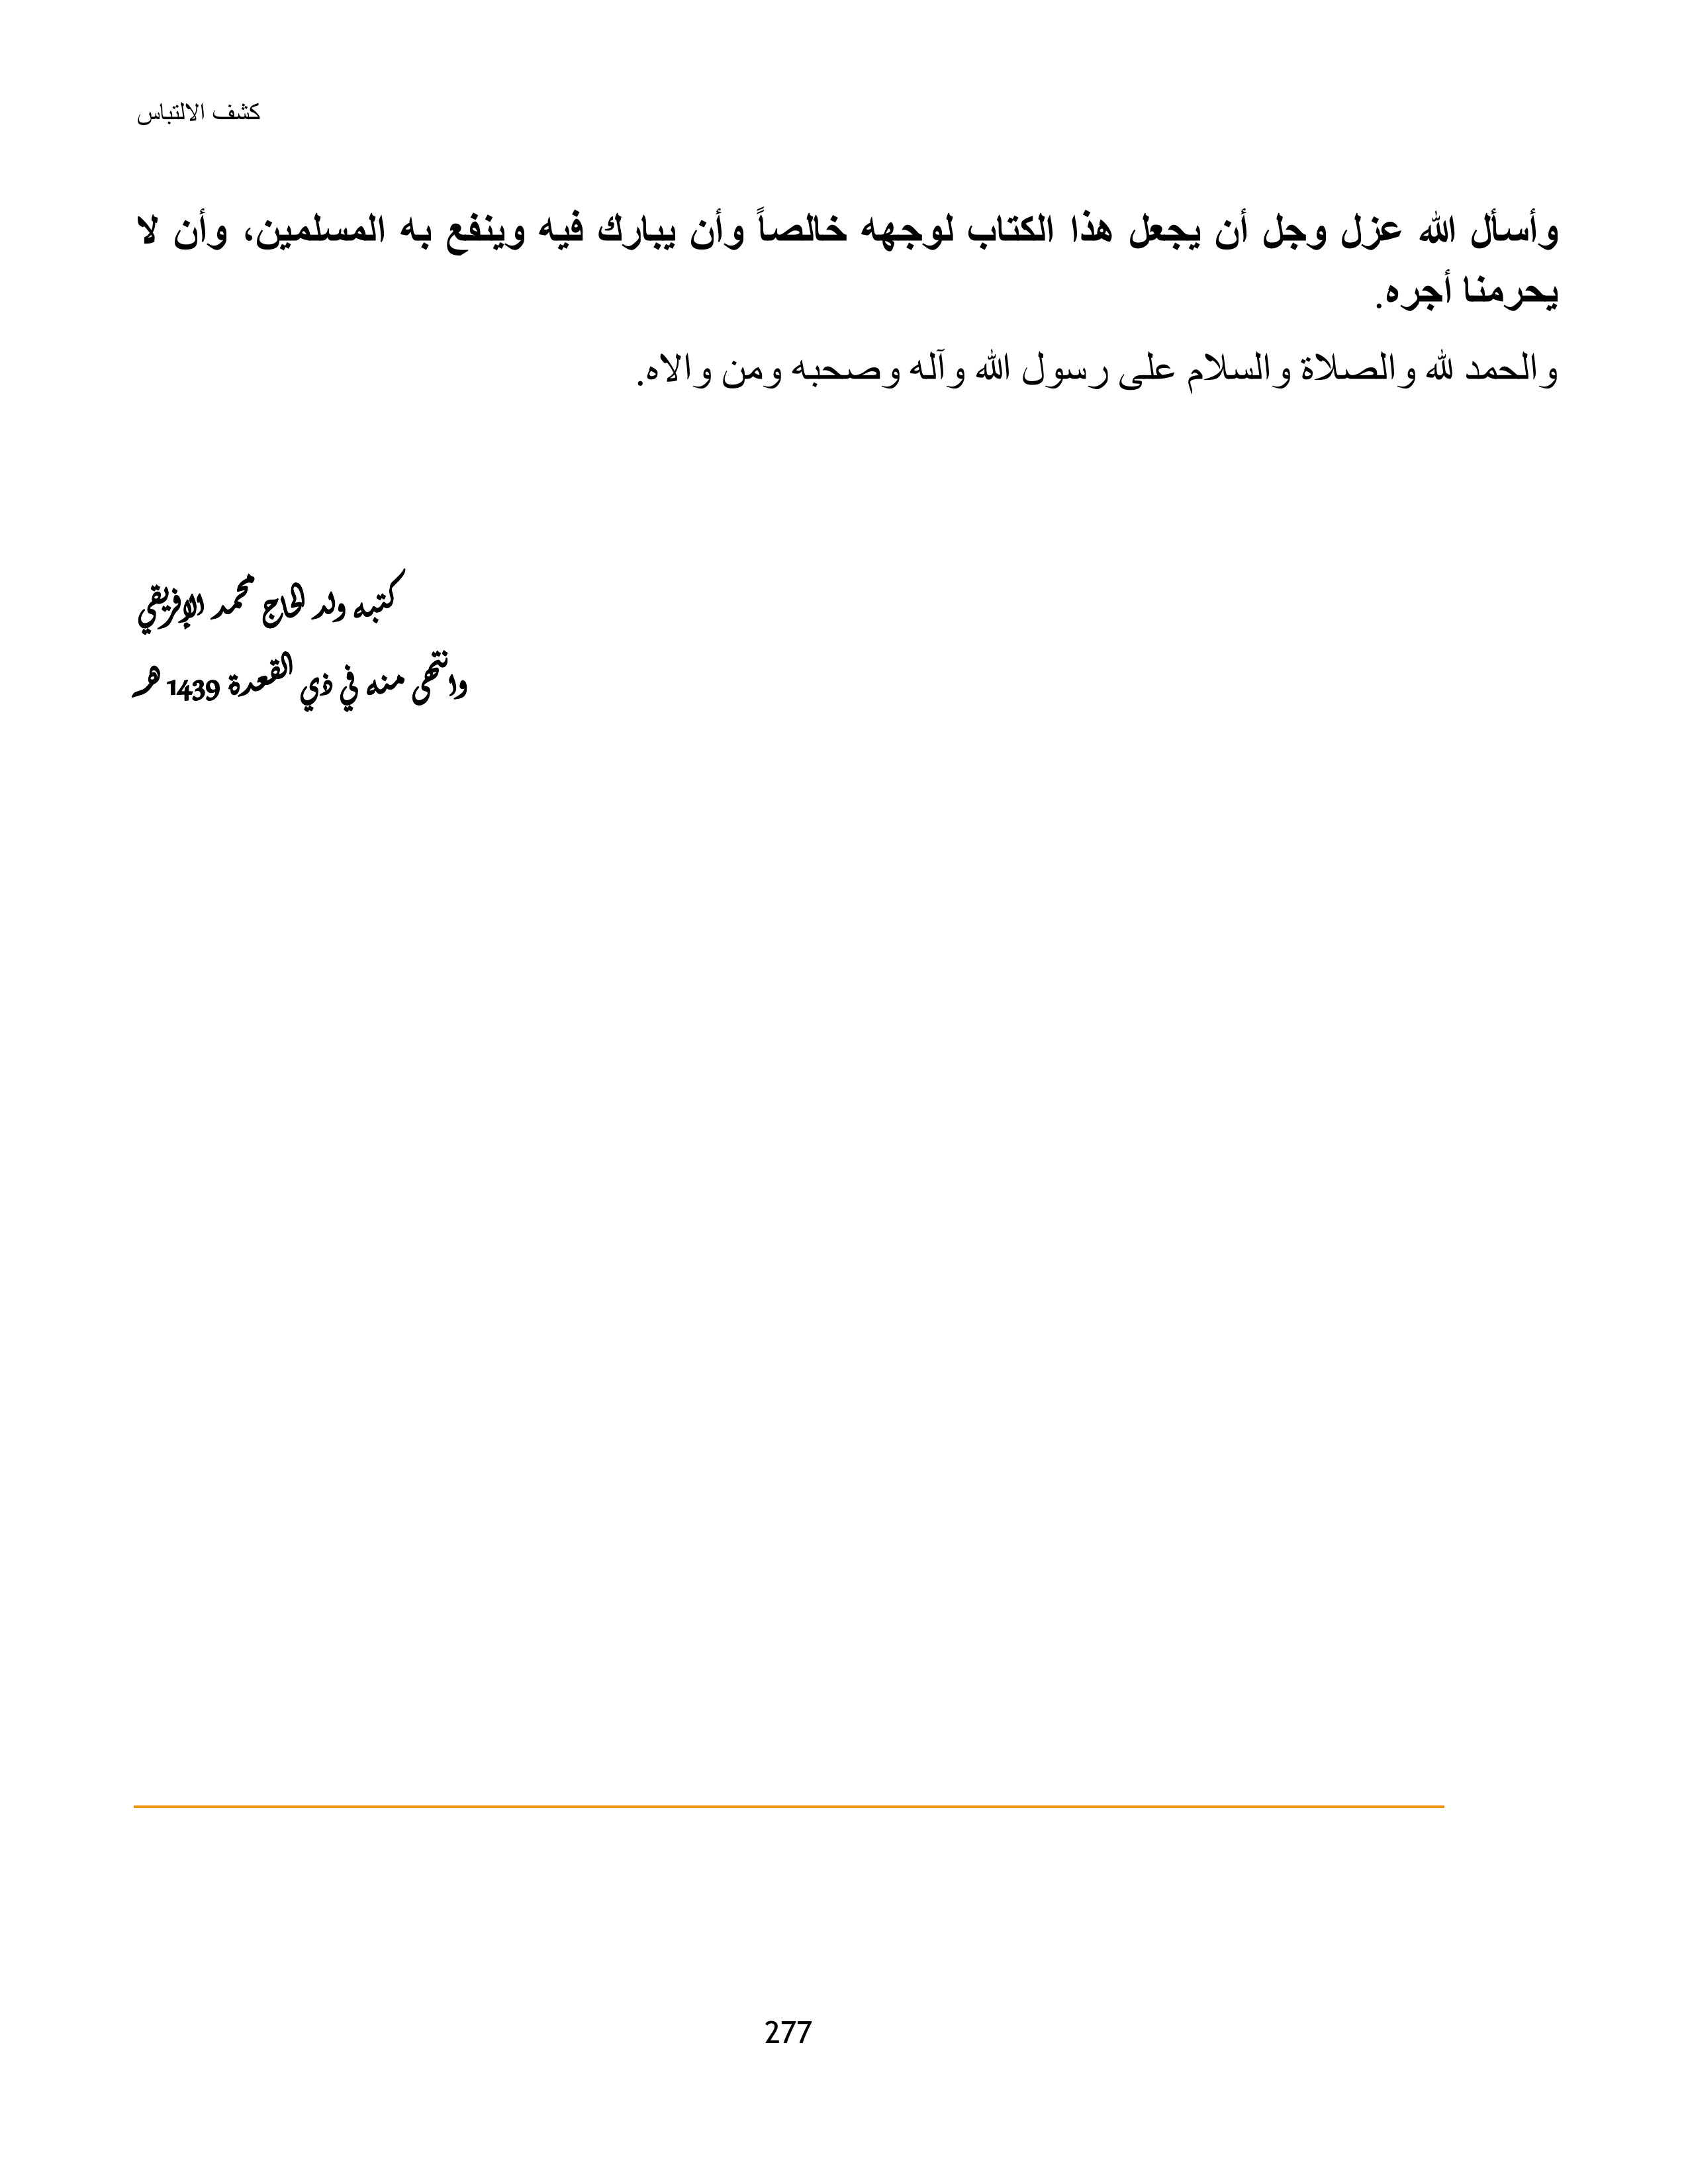 كشف الالتباس
وأسأل الله عزل وجل أن يجعل هذا الكتاب لوجهه خالصاً وأن يبارك فيه وينفع به المسلمين، وأن لا
يحرمنا أجره.
والحمد لله والصلاة والسلام على رسول الله وآله وصحبه ومن والاه.
كتبه ولد الحاج محمد الإفريقي
وانتهى منه في ذي القعدة 1439هـ
277